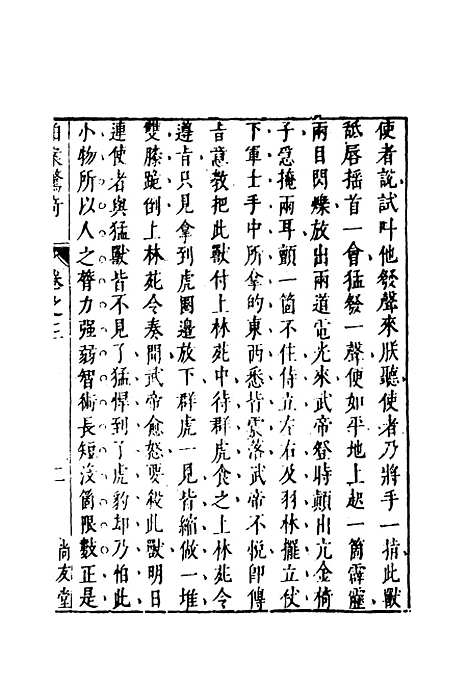 使者說試叫他發聲來朕聽使者乃將手一指此獸
舐唇搖首一會猛發一聲便如平地上起一箇霹靂
兩目閃爍放出兩道電光來武帝登時顛出亢金椅
子急掩兩耳顫一箇不住侍立左右及羽林擺立仗
下軍士手中所拿的東西悉皆震落武帝不悅即傳
旨意教把此獸付上林苑中待群虎食之上林苑令
遵旨只見拿到虎圈邊放下群虎一見皆縮做一堆
雙膝跪倒上林苑令奏聞武帝愈怒要殺此獸明日
連使者與猛獸皆不見了猛悍到了虎豹却乃怕此
小物所以人之膂力强弱智術長短没箇限數正是
拍案驚奇 卷之三 二 尚友堂